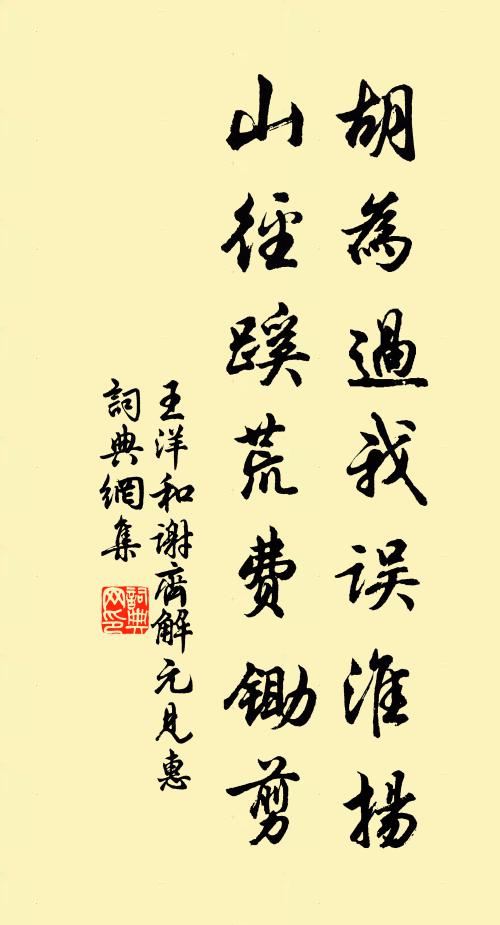 胡為過我误淮揚
山徑蹊荒费鋤剪
王洋和谢齊解元見惠
詞典網集
詞典
网印